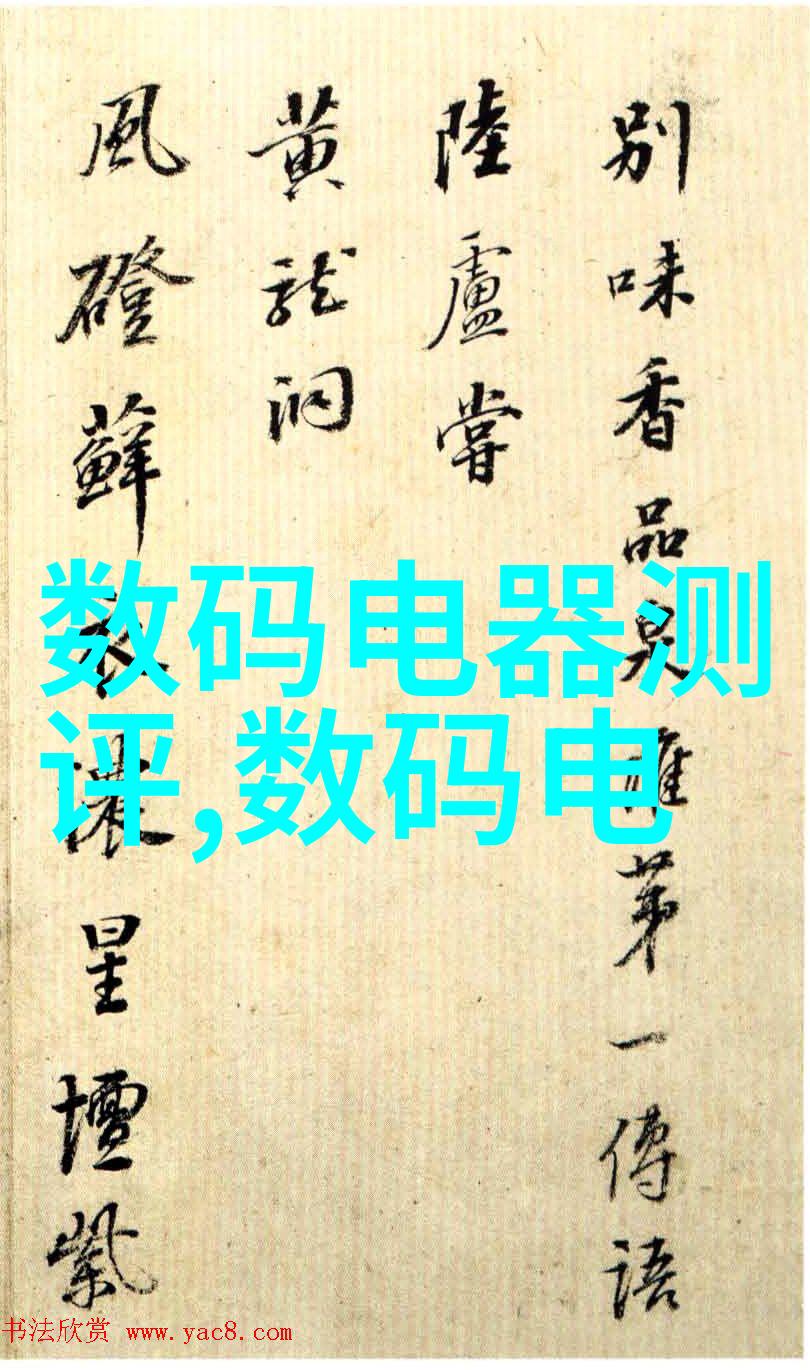 别味香品泉谁第一傳語
陸盧嘗
黄龍洞
風磴蘚衣濃星壇紫
数码电器测
评,数码电
书法欣赏 www.yac8.com